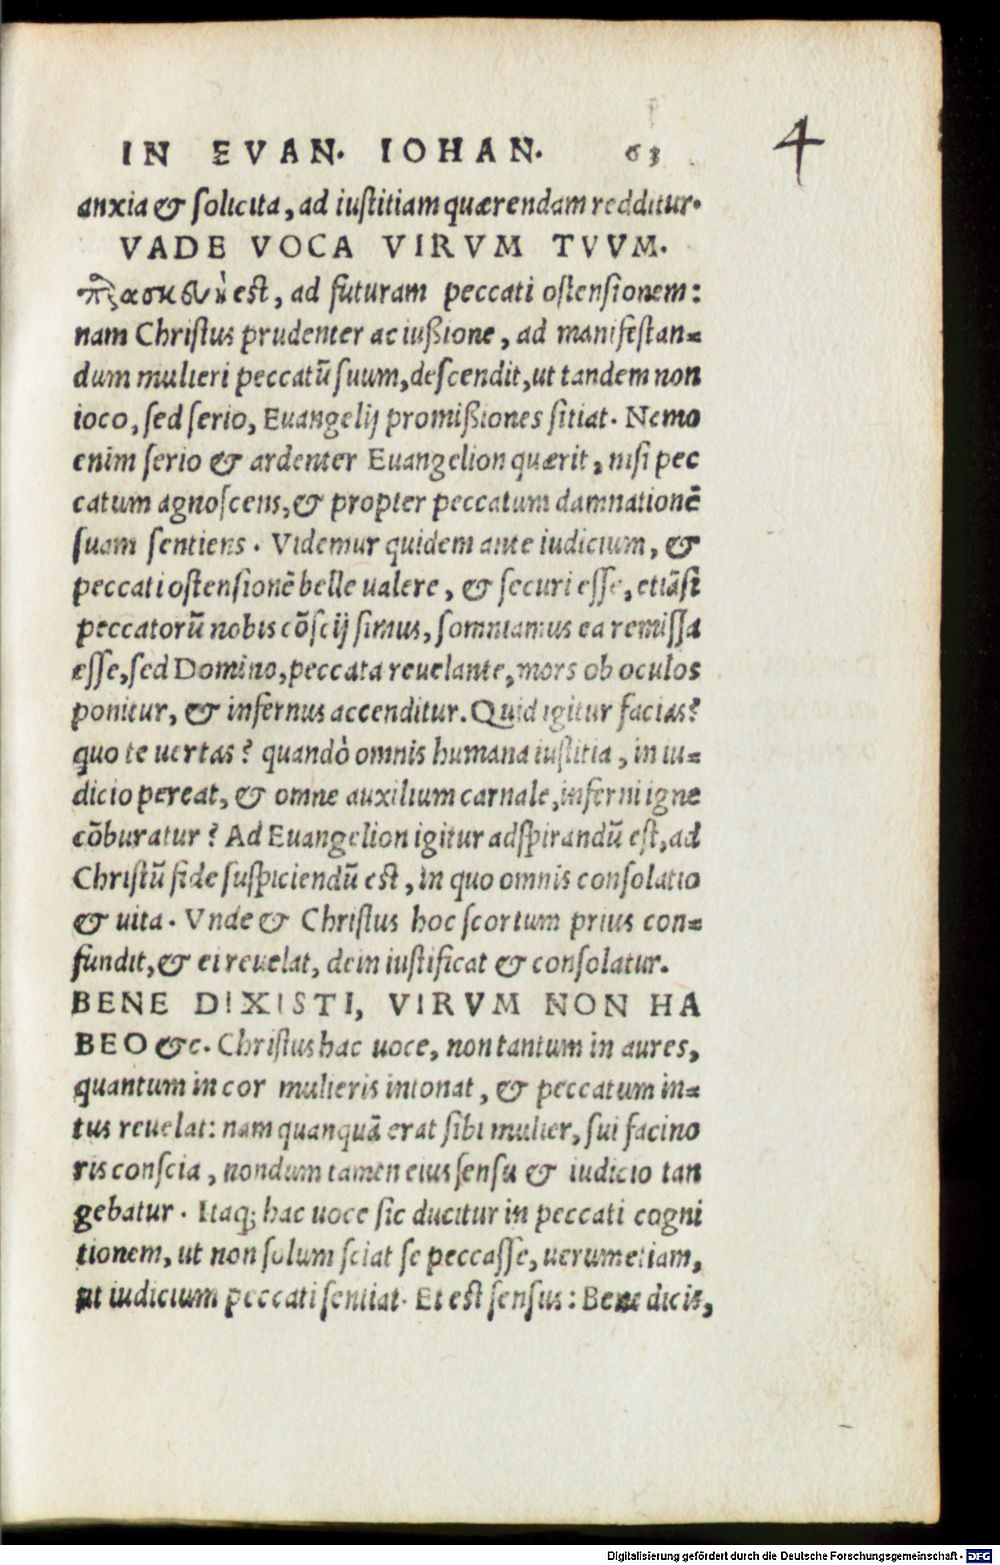 IN EVAN. IOHAN. 63
4
anxia & solicita, ad iustitiam quærendam redditur.
VADE VOCA VIRVM TVVM.
παρασκευὴ est, ad futuram peccati ostensionem:
nam Christus prudenter ac iußione, ad manifestan=
dum mulieri peccatũ suum, descendit, ut tandem non
ioco, sed serio, Euangelij promißiones sitiat. Nemo
enim serio & ardenter Euangelion quærit, nisi pec
catum agnoscens, & propter peccatum damnationẽ
suam sentiens. Videmur quidem ante iudicium, &
peccati ostensionẽ belle ualere, & securi esse, etiãsi
peccatorũ nobis cõscij simus, somniamus ea remissa
esse, sed Domino, peccata reuelante, mors ob oculos
ponitur, & infernus accenditur. Quid igitur facias?
quo te uertas? quandò omnis humana iustitia, in iu=
dicio pereat, & omne auxilium carnale, inferni igne
cõburatur? Ad Euangelion igitur adspirandũ est, ad
Christũ fide suspiciendũ est, in quo omnis consolatio
& uita. Vnde & Christus hoc scortum prius con=
fundit, & ei reuelat, dein iustificat & consolatur.
BENE DIXISTI, VIRVM NON HA
BEO &c. Christus hac uoce, non tantum in aures,
quantum in cor mulieris intonat, & peccatum in=
tus reuelat: nam quanquã erat sibi mulier, sui facino
ris conscia, nondum tamen eius sensu & iudicio tan
gebatur. Itaq; hac uoce sic ducitur in peccati cogni
tionem, ut non solum sciat se peccasse, uerumetiam,
ut iudicium peccati sentiat. Et est sensus: Bene dicis,
Digitalisierung gefördert durch die Deutsche Forschungsgemeinschaft - DFG